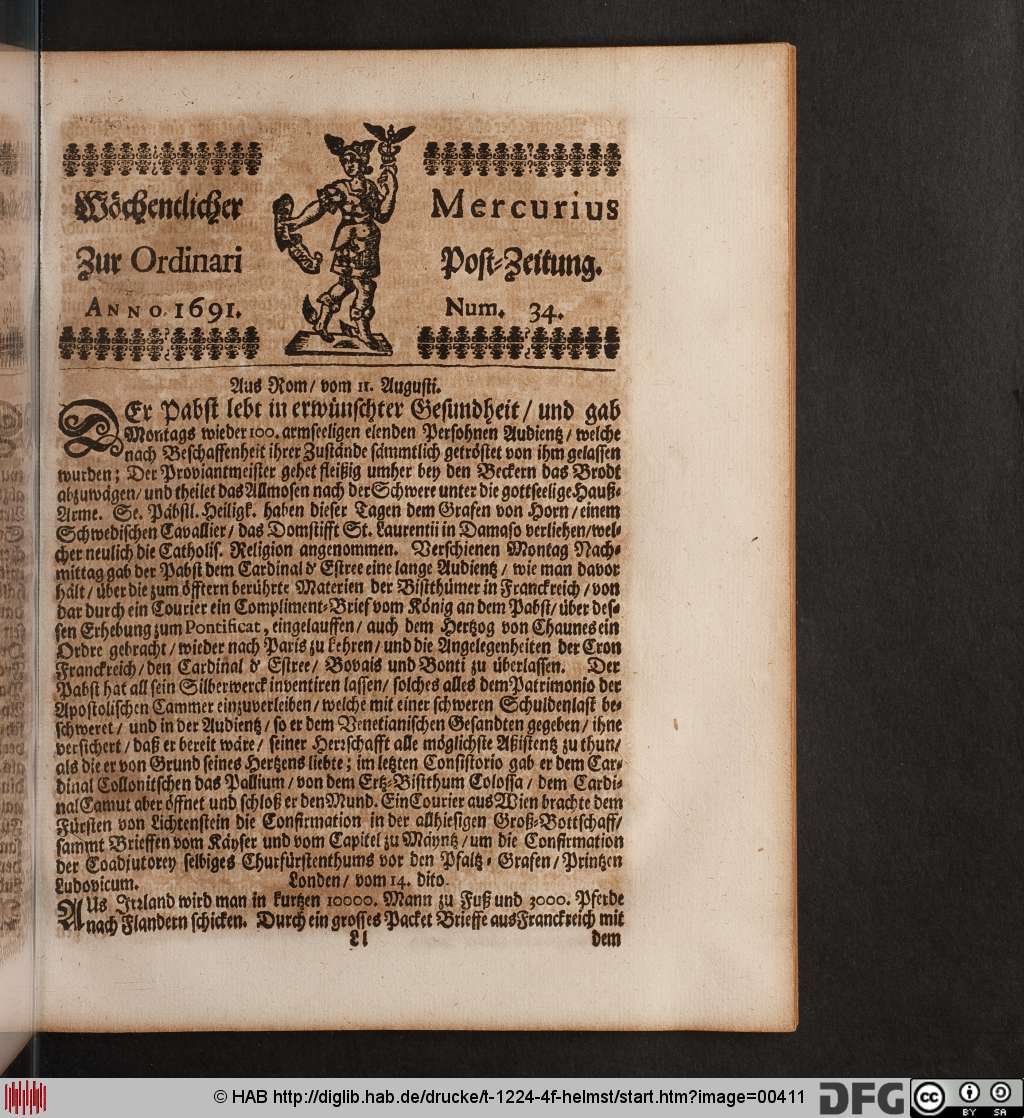 Wöchentlicher Mercurius
Zur Ordinari Post-Zeitung.
ANNO. 1691. Num. 34.
Aus Rom / vom 11. Augusti.
DEr Pabst lebt in erwünschter Gesundheit / und gab
Montags wieder 100. armseeligen elenden Persohnen Audientz / welche
nach Beschaffenheit ihrer Zustände sämmtlich getröstet von ihm gelassen
wurden; Der Proviantmeister gehet fleißig umher bey den Beckern das Brodt
abzuwägen / und theilet das Allmosen nach der Schwere unter die gottseelige Hauß-
Arme. Se. Päbstl. Heiligk. haben dieser Tagen dem Grafen von Horn / einem
Schwedischen Cavallier / das Domstifft St. Laurentii in Damaso verliehen / wel-
cher neulich die Catholis. Religion angenommen. Verschienen Montag Nach-
mittag gab der Pabst dem Cardinal d' Estree eine lange Audientz / wie man davor
hält / über die zum öfftern berührte Materien der Bistthümer in Franckreich / von
dar durch ein Courier ein Compliment-Brief vom König an dem Pabst / über des-
sen Erhebung zum Pontificat, eingelauffen / auch dem Hertzog von Chaunes ein
Ordre gebracht / wieder nach Paris zu kehren / und die Angelegenheiten der Cron
Franckreich / den Cardinal d' Estree / Bovais und Bonti zu überlassen. Der
Pabst hat all sein Silberwerck inventiren lassen / solches alles dem Patrimonio der
Apostolischen Cammer einzuverleiben / welche mit einer schweren Schuldenlast be-
schweret / und in der Audientz / so er dem Venetianischen Gesandten gegeben / ihne
versichert / daß er bereit wäre / seiner Herrschafft alle möglichste Aßistentz zu thun /
als die er von Grund seines Hertzens liebte; im letzten Consistorio gab er dem Car-
dinal Collonitschen das Pallium / von dem Ertz-Bistthum Colossa / dem Cardi-
nal Camut aber öffnet und schloß er den Mund. Ein Courier aus Wien brachte dem
Fürsten von Lichtenstein die Confirmation in der allhiesigen Groß-Bottschaff /
sammt Brieffen vom Käyser und vom Capitel zu Mäyntz / um die Confirmation
der Coadjutorey selbiges Churfürstenthums vor den Pfaltz-Grafen / Printzen
Ludovicum. Londen / vom 14. dito.
AUs Irrland wird man in kurtzen 10000. Mann zu Fuß und 3000. Pferde
nach Flandern schicken. Durch ein grosses Packet Brieffe aus Franckreich mit
Ll dem
© HAB http://diglib.hab.de/drucke/t-1224-4f-helmst/start.htm?image=00411
DFG
cc BY SA